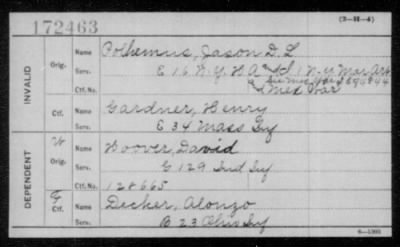 172463
(3-H-4)
INVALID
Orig.
Name Polhemus, Jason D. L
Serv. E 16 N.Y. H A & 1 N.Y. Mar Art
Mex War
Ctf.No.
Ctf.
Name Gardner, Henry
Serv. E 34 Mass Inf
DEPENDENT
W
Orig.
Name Hoover, David
Serv. G 129 Ind Inf
Ctf. No. 128665
Ctf.
Name Decker, Alonzo
Serv. B 23 Ohio Inf